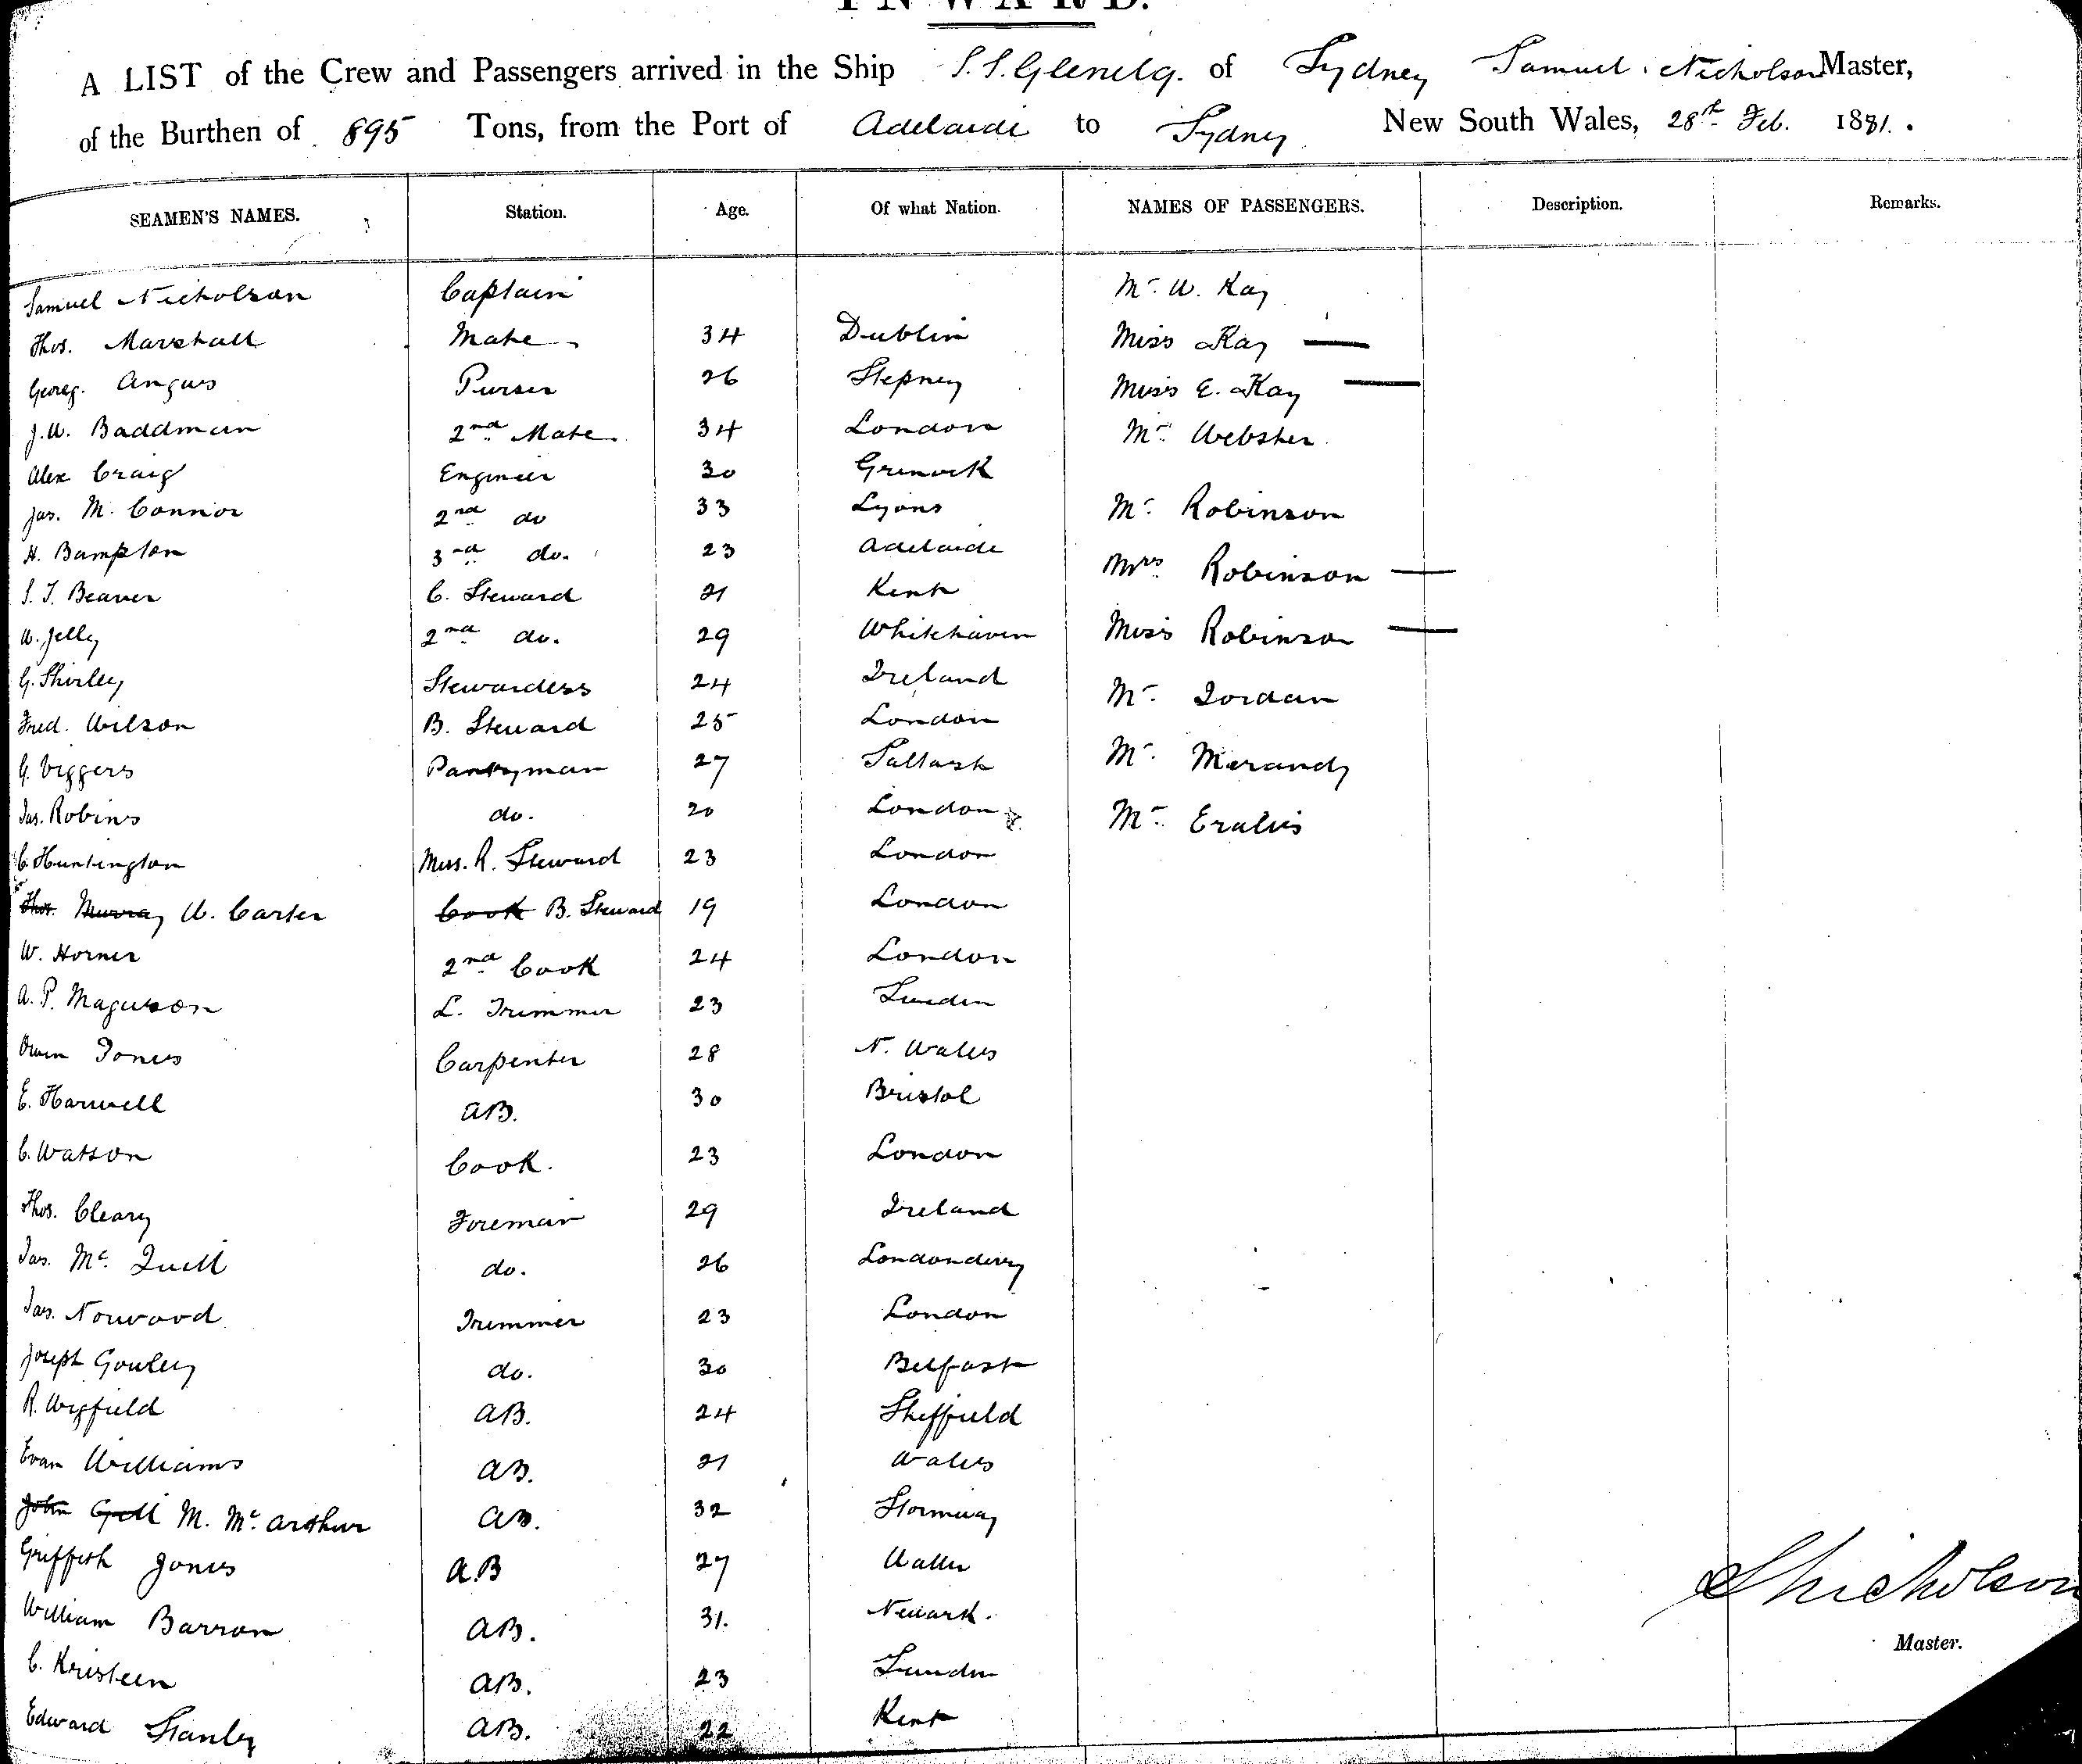 INWARD.
A LIST of the Crew and Passengers arrived in the Ship S.S. Glenelg. of Sydney Samuel Nicholson Master,
of the Burthen of 895 Tons, from the Port of Adelaide to Sydney New South Wales, 28th Feb. 1881.
SEAMEN'S NAMES. Station. Age. Of what Nation. NAMES OF PASSENGERS. Description. Remarks.
Samuel Nicholson Captain Mr. W. Kay
Thos. Marshall Mate 34 Dublin Miss Kay —
Georg. Angus Purser 26 Stepney Miss E. Kay —
J.W. Baddman 2nd Mate 34 London Mr. Webster
Alex Craig Engineer 30 Grenock
Jas. M. Connor 2nd do 33 Lyons Mr. Robinson
H. Bampton 3rd do. 23 Adelaide Mrs. Robinson —
S. T. Beaver C. Steward 21 Kent
W. Jelly 2nd do. 29 Whitehaven Miss Robinson —
G. Shirley Stewardess 24 Ireland Mr. Jordan
Fred. Wilson B. Steward 25 London
G. Viggers Pantryman 27 Saltash Mr. Morandy
Jas. Robins do. 20 London Mr.
C. Huntington Mess. R. Steward 23 London
Thos. Murray W. Carter Cook B. Steward 19 London
W. Horner 2nd Cook 24 London
A. P. Maguson L. Trimmer 23 Sweden
Owen Jones Carpenter 28 N. Wales
E. Harwell AB. 30 Bristol
C. Watson Cook. 23 London
Thos. Cleary Foreman 29 Ireland
Jas. Mc. Quell do. 26 Londonderry
Jas. Norwood Trimmer 23 London
Joseph Gouley do. 30 Belfast
R. Wigfield AB. 24 Sheffield
Evan Williams AB. 21 Wales
John Gell M. Mc. Arthur AB. 32 Stornway
Griffith Jones A.B 27 Wales
William Barron AB. 31. Newark.
C. Kristeen AB. 23 Sweden
Edward Stanley AB. 22 Kent
S Nicholson
Master.